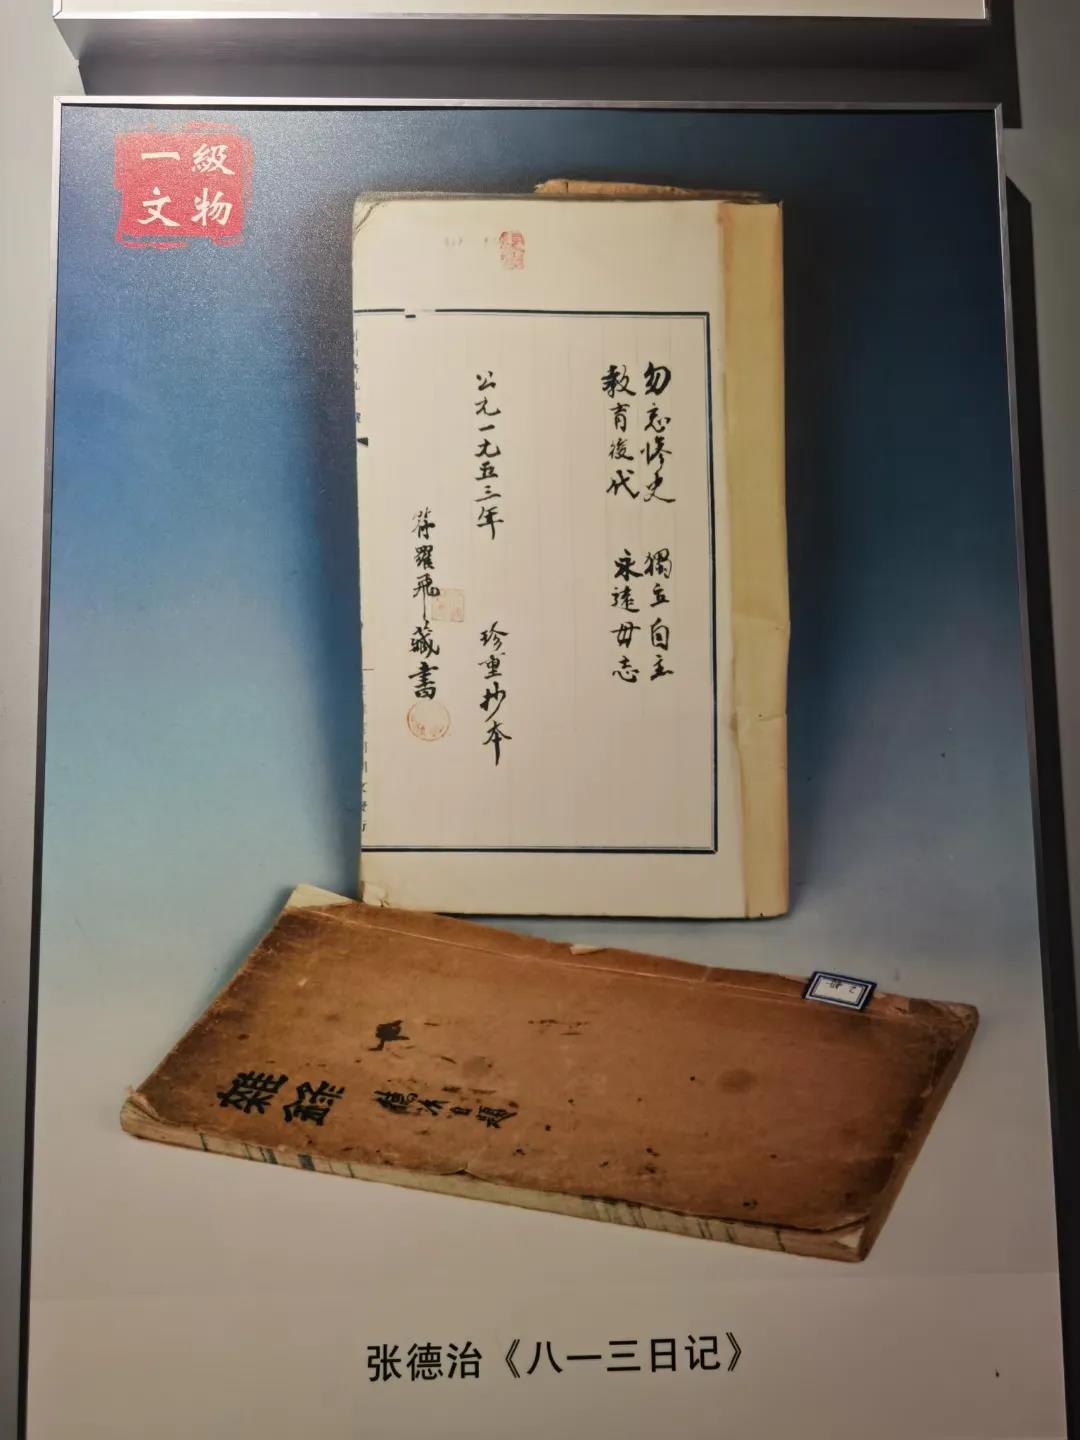 一級
文物
勿忘惨史 獨立自主
教育後代 永遠毋志
公元一九五三年 珍重抄本
符羅飛藏書
雜錄
張德治《八一三日记》